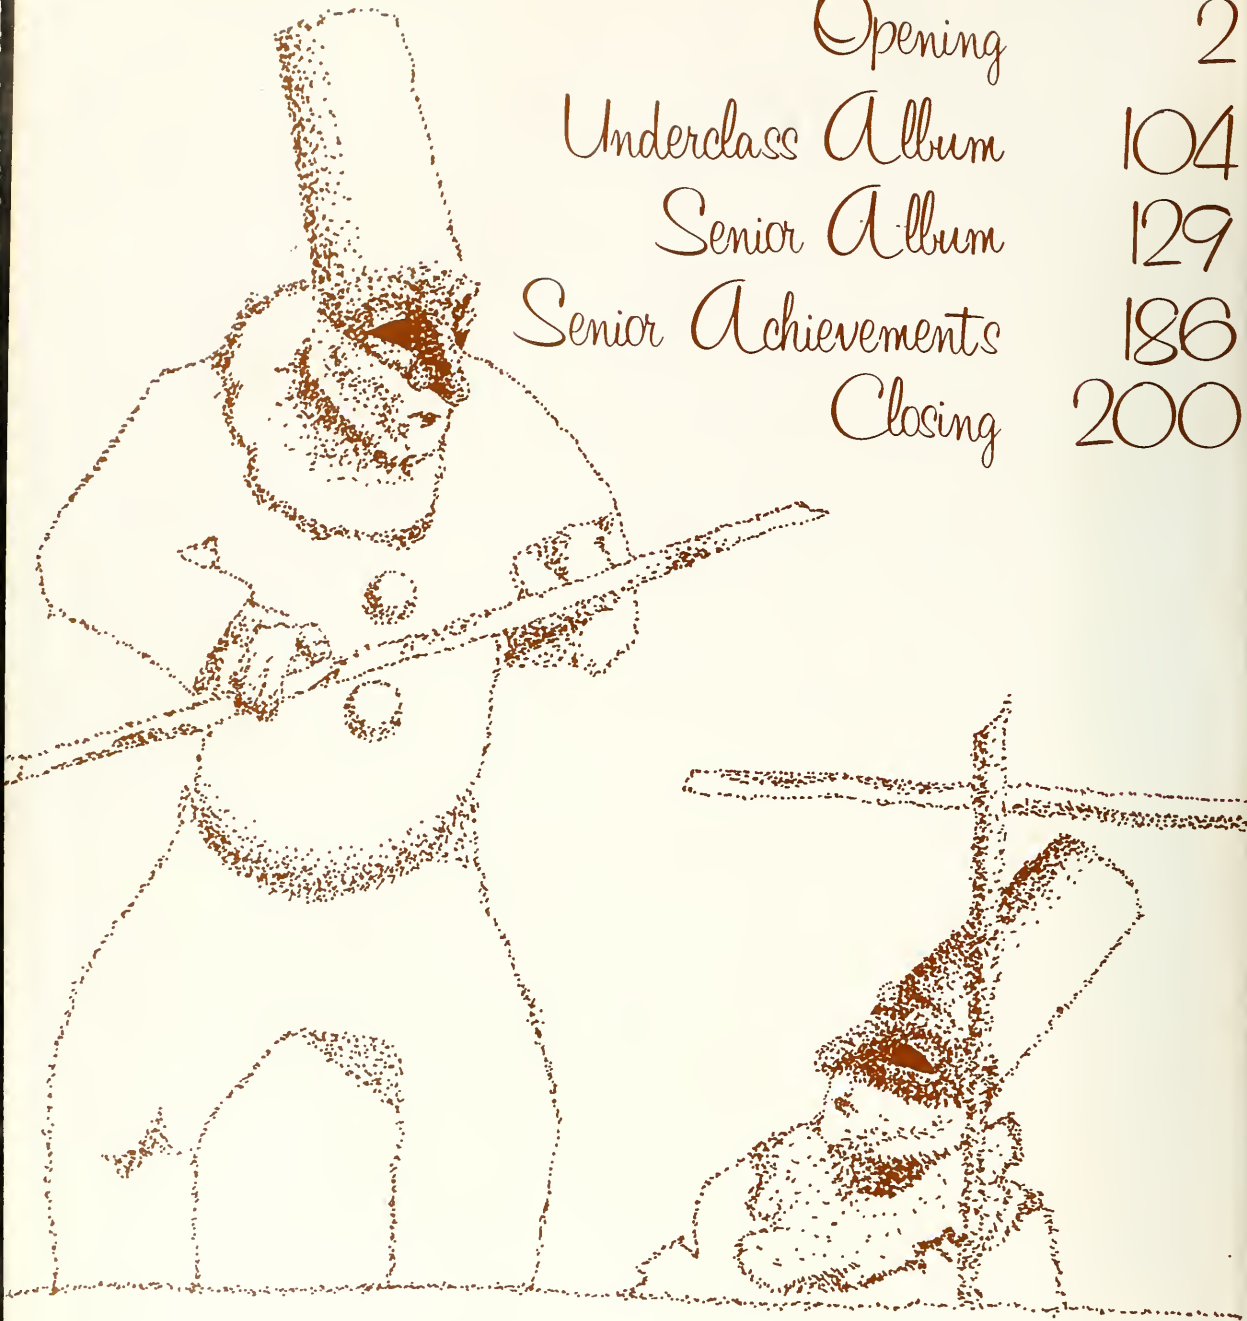 Opening 2
Underclass Album 104
Senior Album 129
Senior Achievements 186
Closing 200